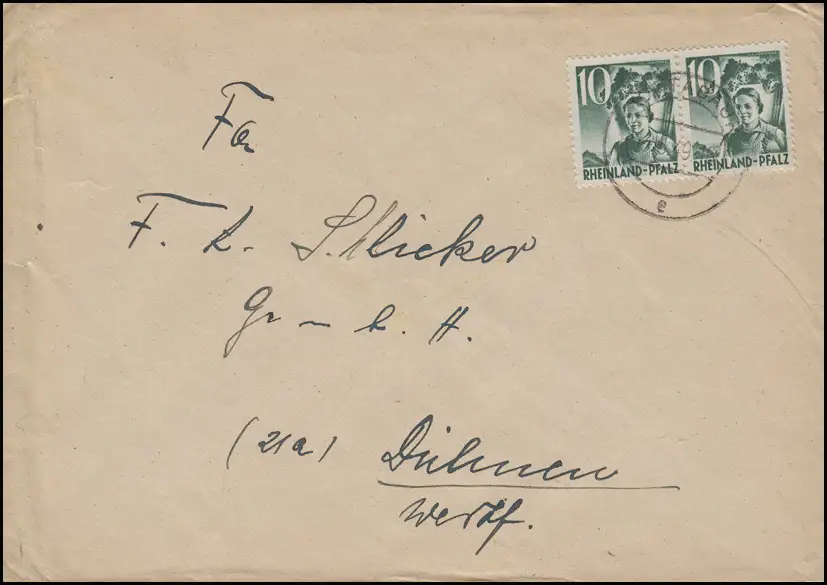 10 10
RHEINLAND-PFALZ RHEINLAND-PFALZ
e
Fa
F. A. Schlicker
G. m. b. H.
(21a) Dülmen
Westf.